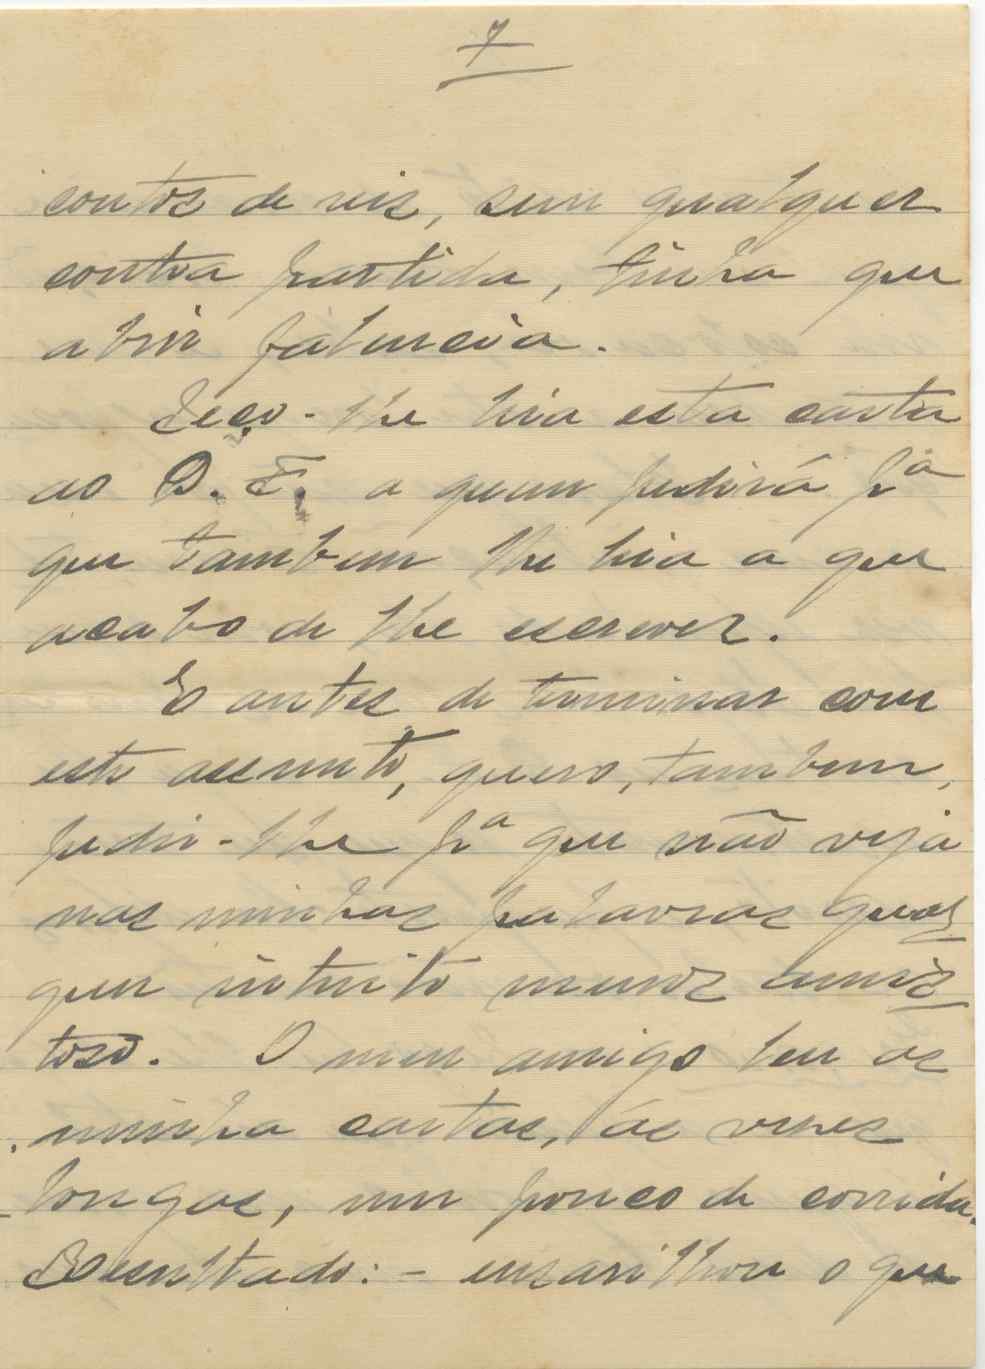 7
contos de reis, sem qualquer
contra partida, tinha que
abrir falencia.
Peço-lhe leia esta carta
ao D. F. a quem pedirá pª
que tambem lhe leia a que
acabo de lhe escrever.
E antes de terminar com
este assunto, quero, tambem,
pedir-lhe pª que não veja
nas minhas palavras qual
quer intuito menos amis
toso. O meu amigo leu as
minha cartas, ás vezes
longas, um pouco de corrida.
Resultado: - ensarilhou o que